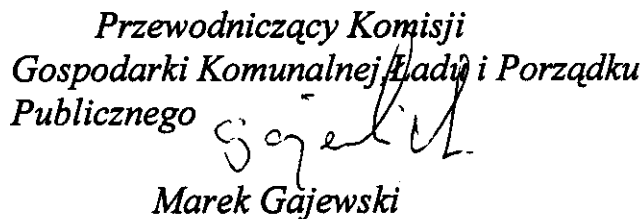 Przewodniczący Komisji
Gospodarki Komunalnej,Ładu i Porządku
Publicznego
Marek Gajewski